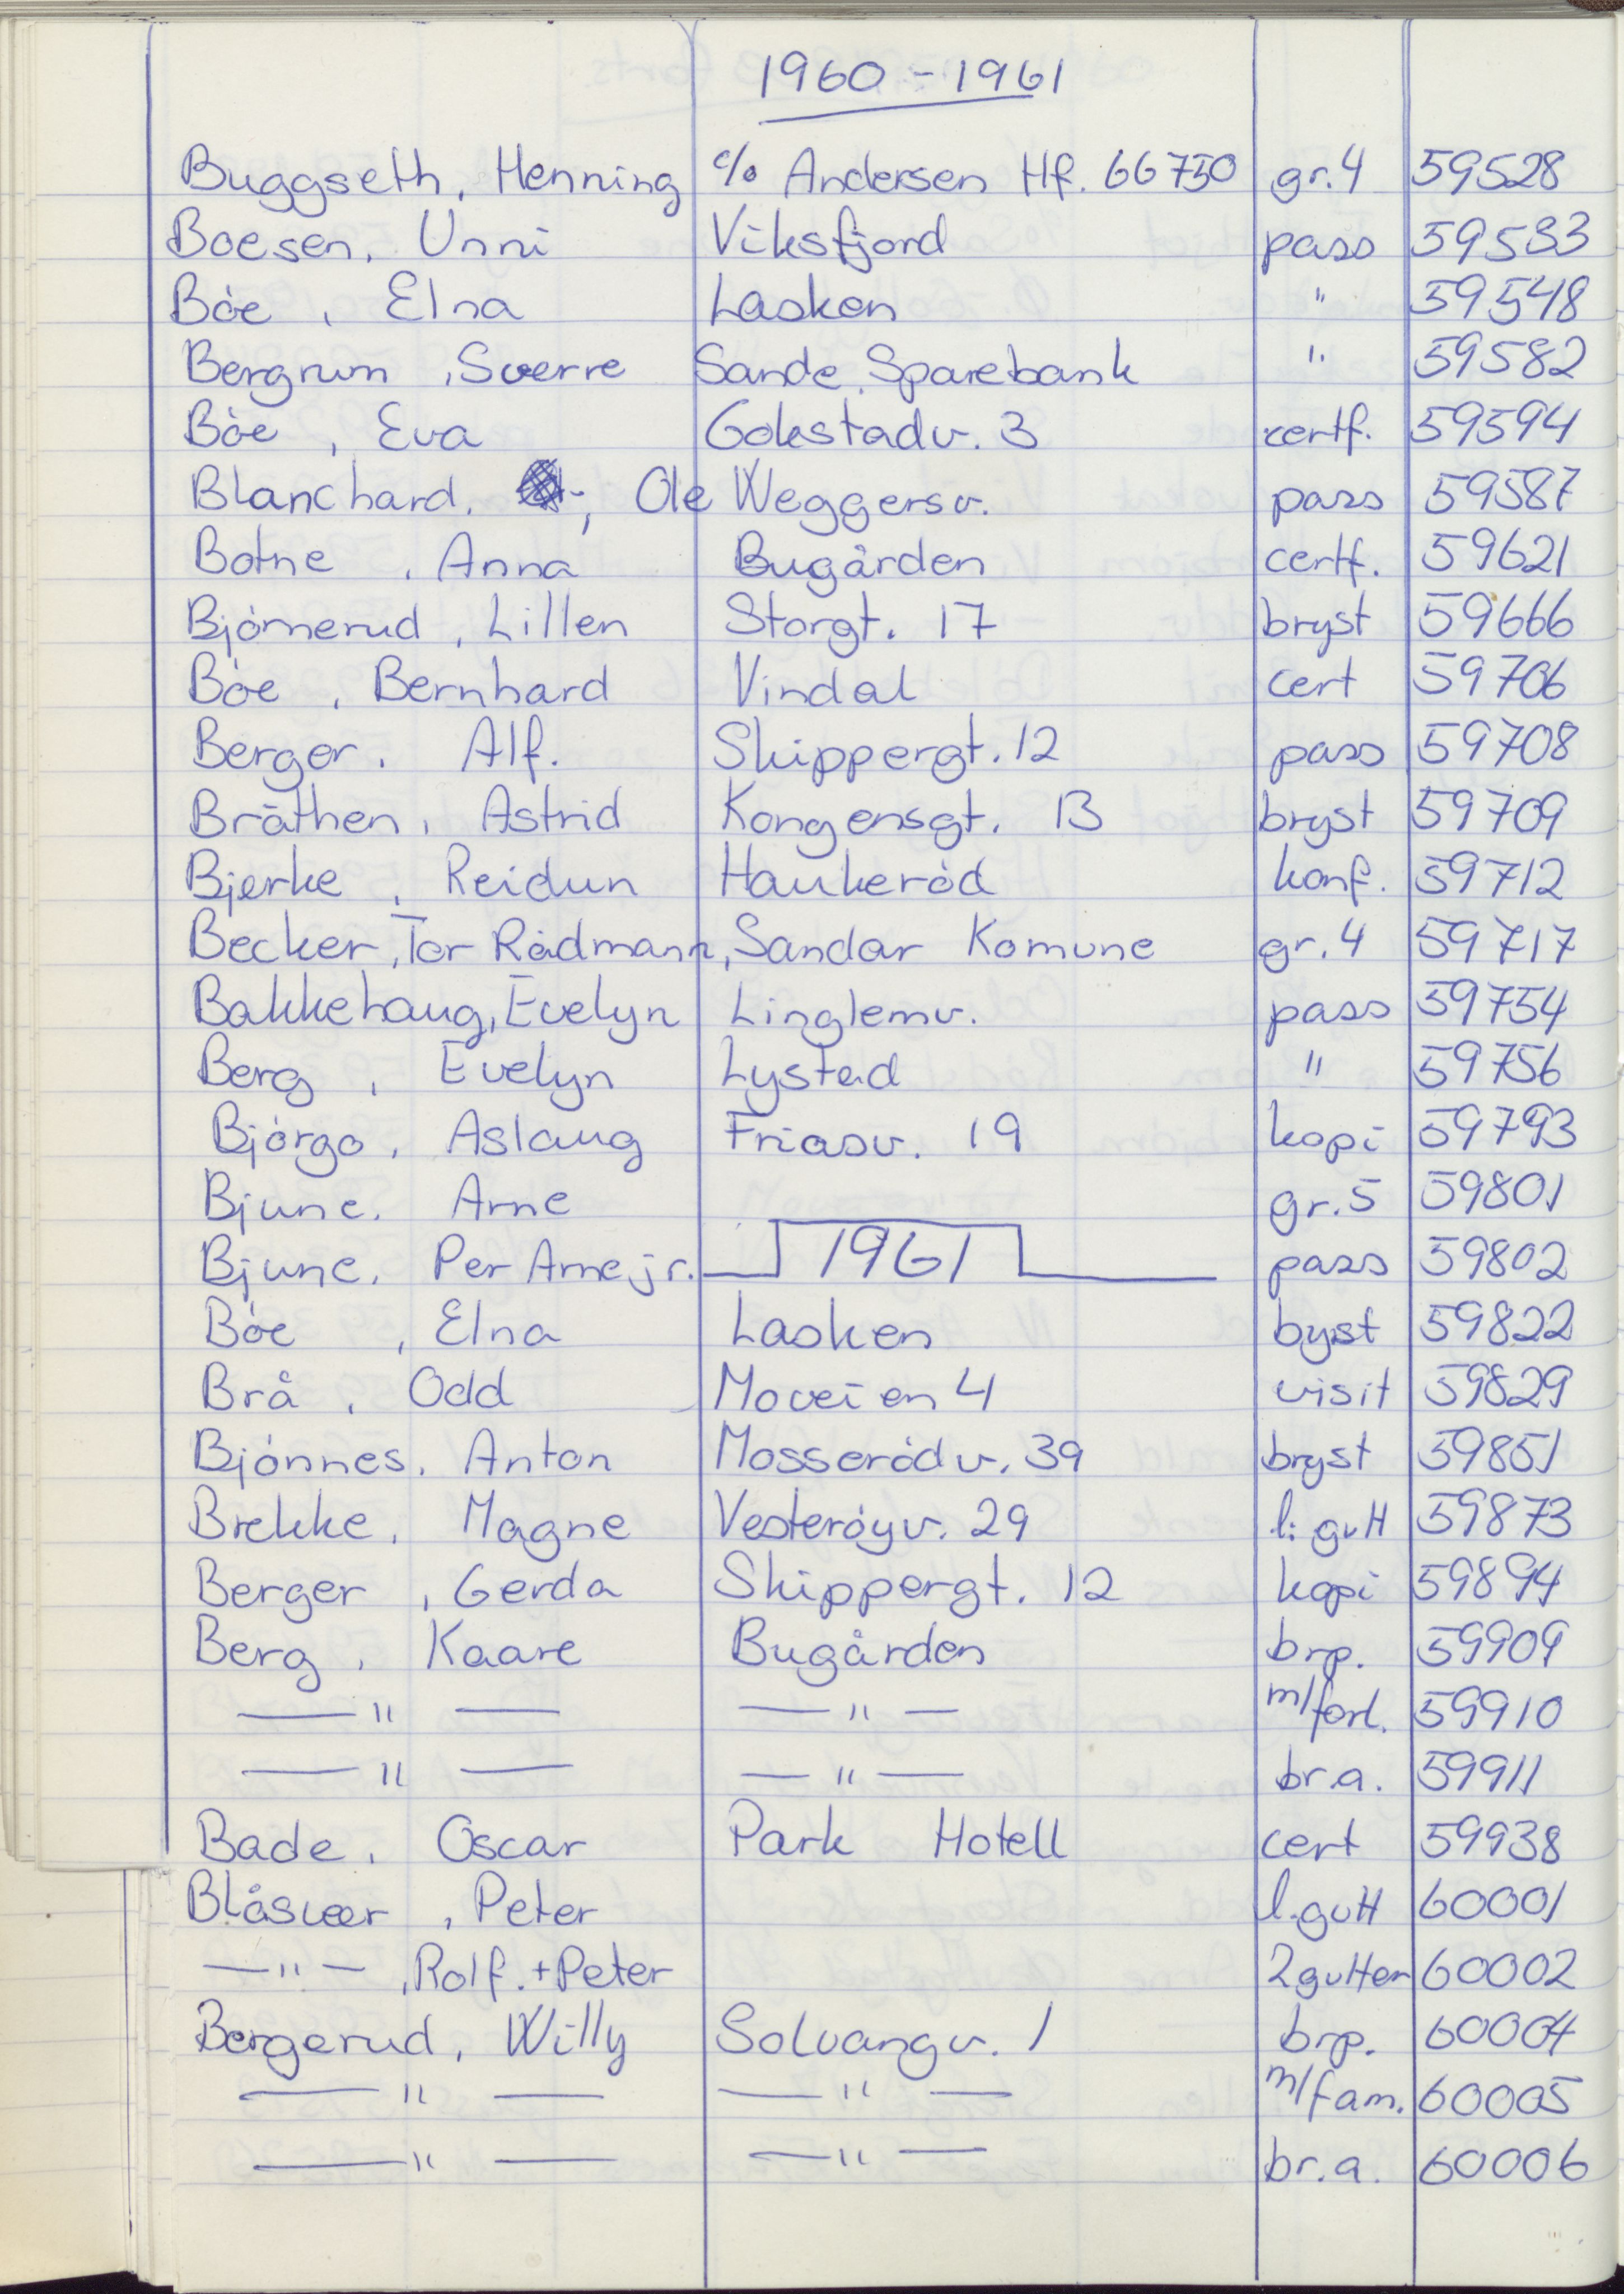 1960 - 1961
Buggseth, Henning c/o Andersen Hf. 66750 gr.4 59528
Boesen, Unni Viksfjord pass 59533
Bøe, Elna Lasken " 59548
Bergrun, Sverre Sande Sparebank " 59582
Bøe, Eva Gokstadv. 3 certf. 59594
Blanchard, Ole Weggersv. pass 59587
Botne, Anna Bugården certf. 59621
Bjørnerud, Lillen Storgt. 17 bryst 59666
Bøe, Bernhard Vindal cert 59706
Berger, Alf. Skippergt. 12 pass 59708
Bråthen, Astrid Kongensgt. 13 bryst 59709
Bjerke, Reidun Haukerød konf. 59712
Becker, Tor Rådmann, Sandar Komune gr.4 59717
Bakkehaug, Evelyn Linglemv. pass 59754
Berg, Evelyn Lystad " 59756
Bjørgo, Aslaug Friasv. 19 kopi 59793
Bjune, Arne gr.5 59801
Bjune, Per Arne jr. 1961 pass 59802
Bøe, Elna Lasken byst 59822
Brå, Odd Moveien 4 visit 59829
Bjønnes, Anton Mosserødv. 39 bryst 59851
Brekke, Magne Vesterøyv. 29 l. gutt 59873
Berger, Gerda Skippergt. 12 kopi 59894
Berg, Kaare Bugården brp. 59909
— " — — " — m/forl. 59910
— " — — " — br.a. 59911
Bade, Oscar Park Hotell cert 59938
Blåsvær, Peter l.gutt 60001
— " —, Rolf. + Peter 2gutter 60002
Bergerud, Willy Solvangv. 1 brp. 60004
— " — — " — m/fam. 60005
— " — — " — br.a. 60006